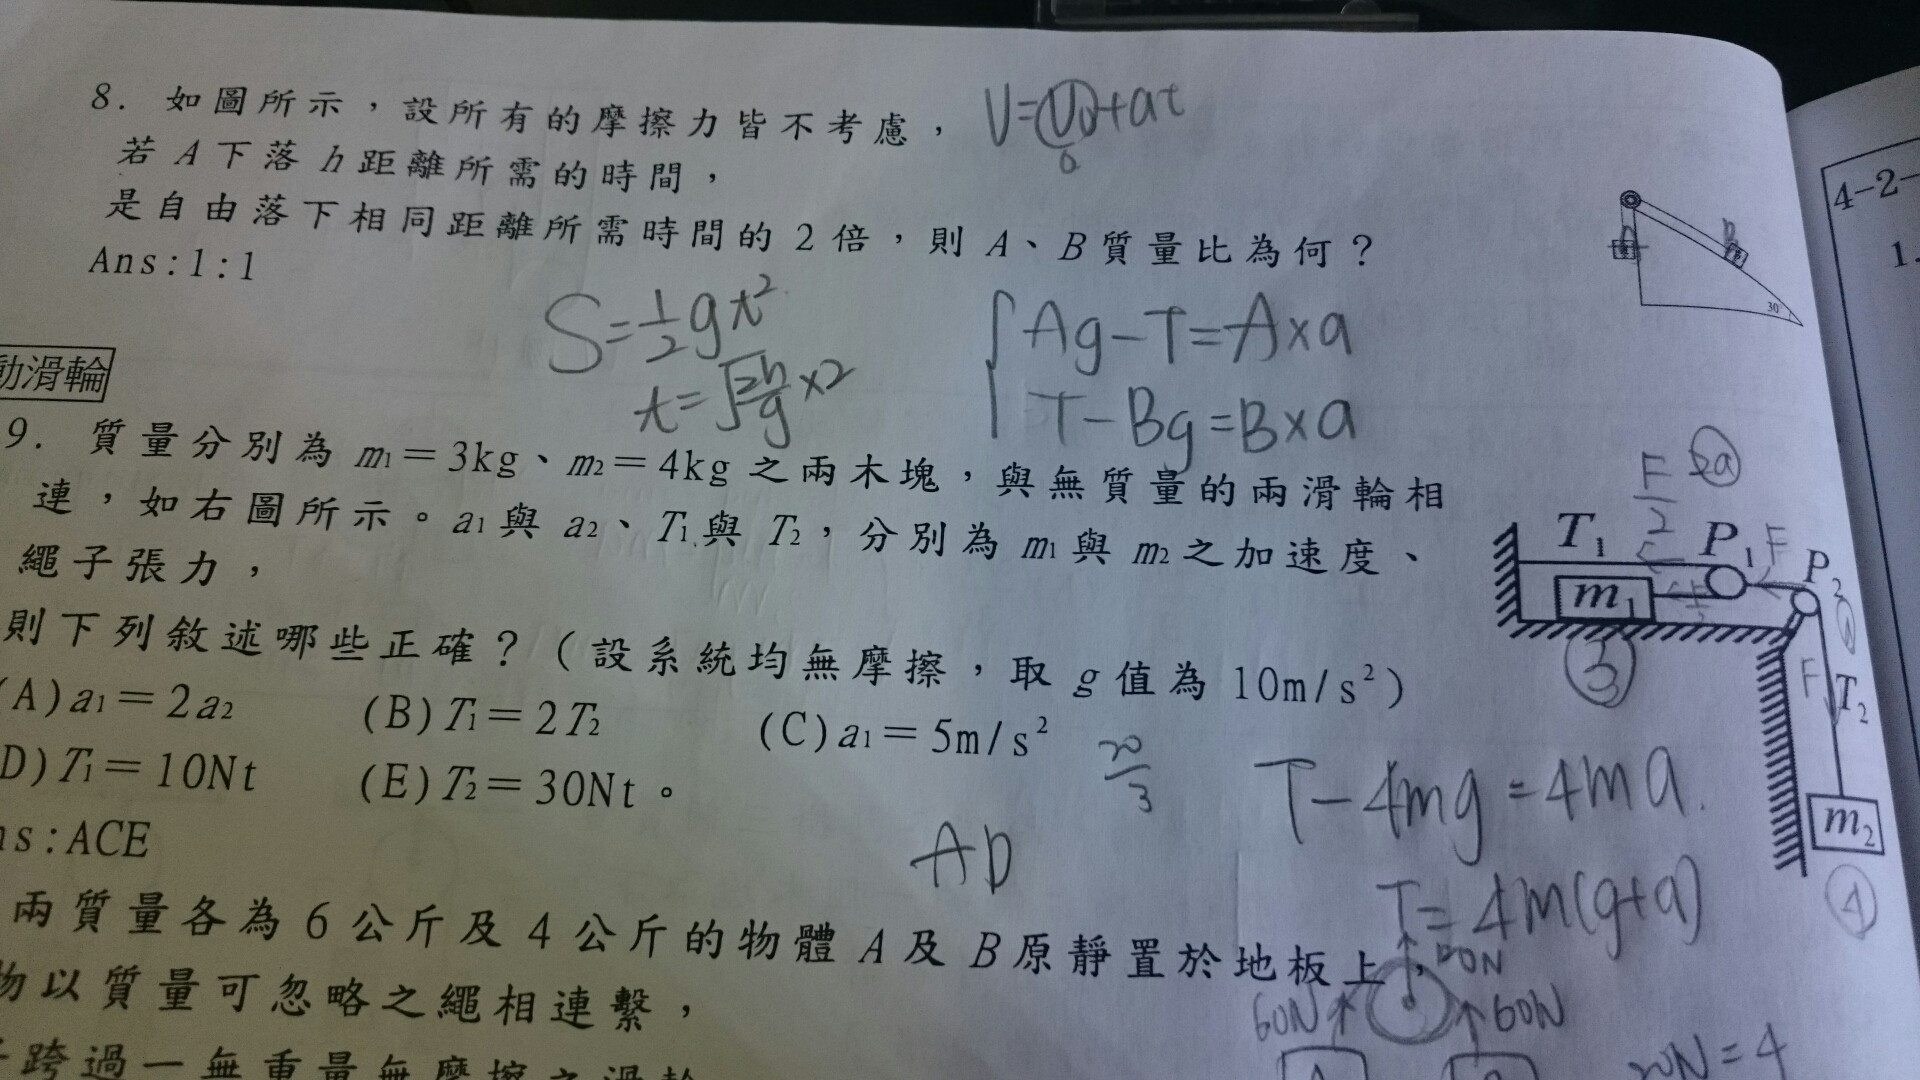 8. 如圖所示，設所有的摩擦力皆不考慮，
V=V₀+at
0
若 A 下落 h 距離所需的時間，
是自由落下相同距離所需時間的 2 倍，則 A、B 質量比為何？
Ans:1:1
30°
S=½gt²
t=√(2h/g)×2
Ag-T=A×a
T-Bg=B×a
4-2-
1.
動滑輪
9. 質量分別為 m₁＝3kg、m₂＝4kg 之兩木塊，與無質量的兩滑輪相
連，如右圖所示。a₁與 a₂、T₁與 T₂，分別為 m₁與 m₂之加速度、
繩子張力，
則下列敘述哪些正確？（設系統均無摩擦，取 g 值為 10m/s²）
(A)a₁＝2a₂ (B)T₁＝2T₂ (C)a₁＝5m/s²
D)T₁＝10Nt (E)T₂＝30Nt。
ns:ACE
20/3
AD
F/2 2a
T₁ P₁ F P₂
m₁
3
F T₂
m₂
4
T-4mg=4ma.
T=4m(g+a)
兩質量各為 6 公斤及 4 公斤的物體 A 及 B 原靜置於地板上，
物以質量可忽略之繩相連繫，
跨過一無重量無摩擦之滑輪
60N 60N
20N=4